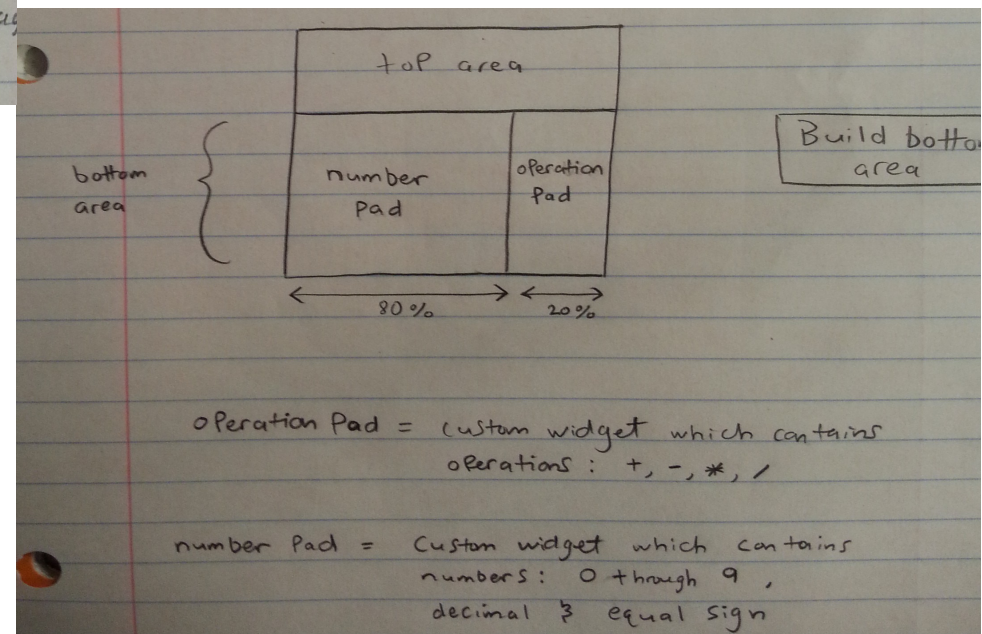 top area
bottom
area
number
Pad
operation
Pad
Build
area
80%
20%
operation Pad = custom widget which contains
operations : +, -, *, /
number Pad = Custom widget which contains
numbers : 0 through 9 ,
decimal & equal sign